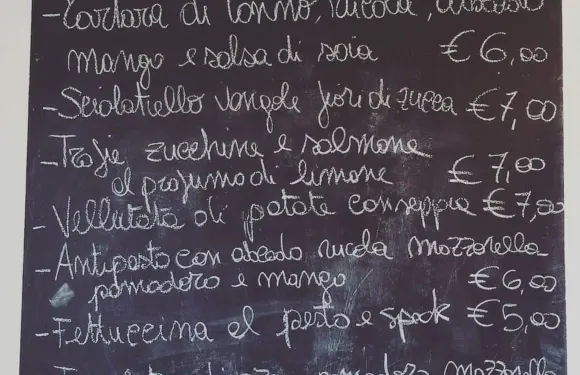 - Tartara di tonno, rucola, avocado
mango e salsa di soia € 6,00
- Scialatiello vongole fiori di zucca € 7,00
- Trofie zucchine e salmone
al profumo di limone € 7,00
- Vellutata di patate con seppia € 7,50
- Antipasto con avocado rucola mozzarella
pomodoro e mango € 6,00
- Fettuccina al pesto e speck € 5,00
pomodoro mozzarella